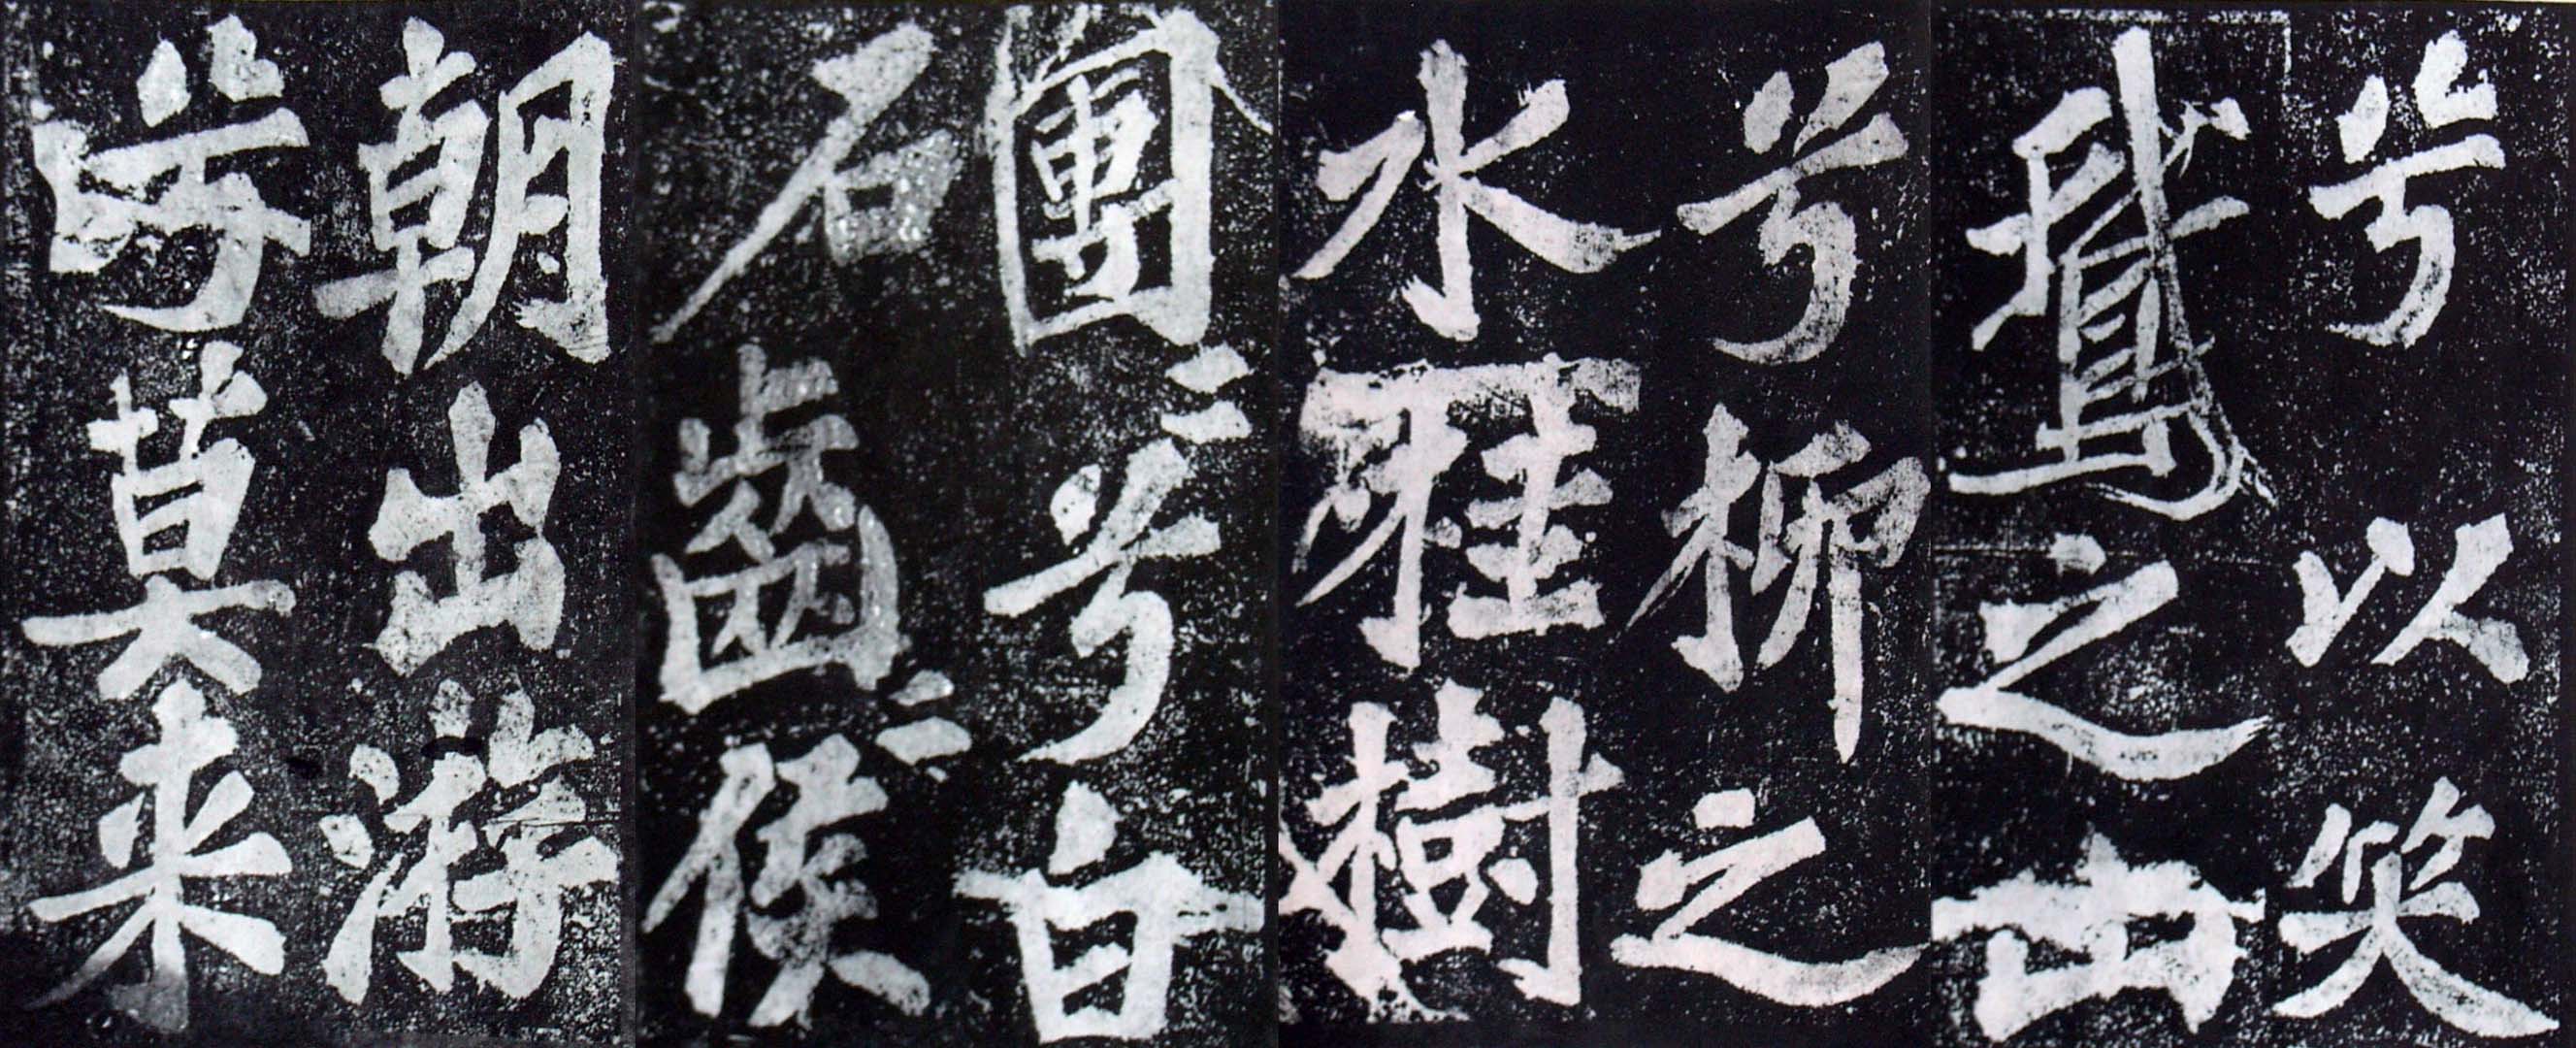 兮以笑
鵞之山
兮柳之
水桂樹
團〻兮白
石齒〻侯
朝出游
兮莫来